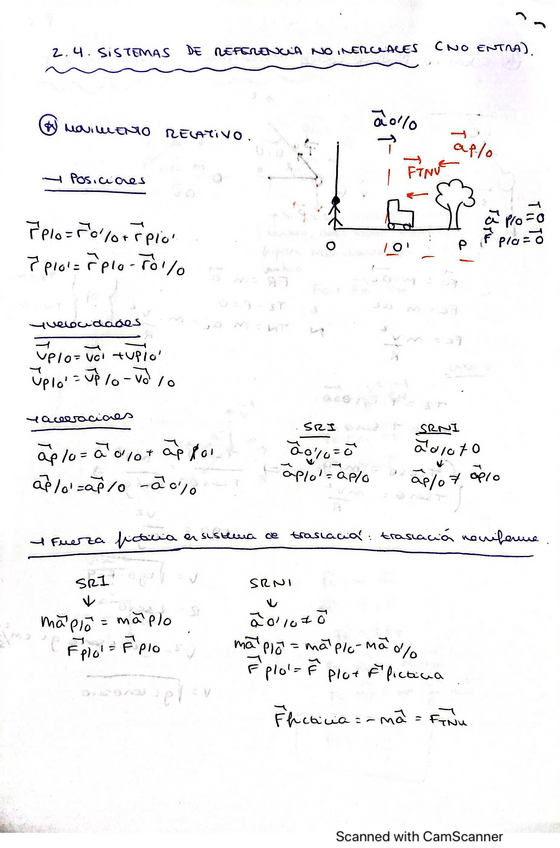 2.4. SISTEMAS DE REFERENCIA NO INERCIALES (NO ENTRA).
* MOVIMIENTO RELATIVO.
a⃗ o'/o
a⃗ p/o
F⃗TNU
→ Posiciones
r⃗ p/o = r⃗ o'/o + r⃗ p/o'
r⃗ p/o' = r⃗ p/o - r⃗ o'/o
a⃗ p/o = 0⃗
F⃗ p/o = 0⃗
O O' P
→ velocidades
v⃗p/o = v⃗o' + v⃗p/o'
v⃗p/o' = v⃗p/o - v⃗o'/o
→ aceleraciones
a⃗p/o = a⃗ o'/o + a⃗p/o'
a⃗p/o' = a⃗p/o - a⃗ o'/o
SRI
a⃗ o'/o = 0⃗
↓
a⃗p/o' = a⃗p/o
SRNI
a⃗ o'/o ≠ 0
↓
a⃗p/o ≠ a⃗p/o
→ Fuerza ficticia en sistema de traslación: traslación no uniforme.
SRI
↓
m a⃗ p/o = m a⃗ p/o
F⃗ p/o' = F⃗ p/o
SRNI
↓
a⃗ o'/o ≠ 0⃗
m a⃗ p/o = m a⃗ p/o - m a⃗ o'/o
F⃗ p/o' = F⃗ p/o + F⃗ ficticia
F⃗ ficticia = - m a⃗ = F⃗TNU
Scanned with CamScanner